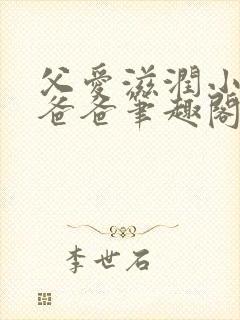 父爱滋润小
爸爸筆趣閣
李世石